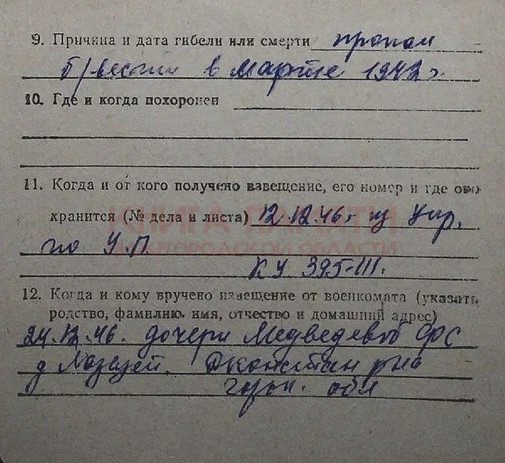 9. Причина и дата гибели или смерти пропал
б/вести в Марте 1942 г.
10. Где и когда похоронен
11. Когда и от кого получено извещение, его номер и где оно
хранится (№ дела и листа) 12.12.46 г. из Упр.
КНИГА ПАМЯТИ
НОВГОРОДСКОЙ ОБЛАСТИ
по У.П.
КУ 395-III.
12. Когда и кому вручено извещение от военкомата (указать
родство, фамилию, имя, отчество и домашний адрес)
24.12.46. дочери Медведевой
д
обл